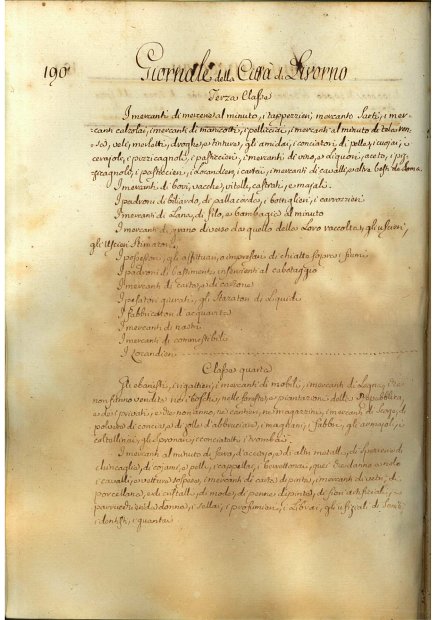 190
Giornale della Città di Livorno
Terza Classe
I mercanti di mercerie al minuto, i tapperzieri, mercanto Sarti, i mer=
canti calzolai, i mercanti di, i pelliciai, i mercanti al minuto di tele
veli, e merletti, droghe, e tinture, gli amidai, i conciatori di pelle, e cuojai, e
cerajoli, i pizzicagnoli, i pasticcieri, i mercanti di vino, e liquori, aceto, i piz=
zicagnoli, i pasticcieri, i Locandieri, i cartai, i mercanti di cavalli, e altre Bestie da Soma.
I mercanti di bovi, vacche, vitelli, castrati, e majali.
I padroni di biliardo, di pallacorda, i bottiglieri, i carrozzieri
I mercanti di Lana, di filo, e bambagia al minuto
I mercanti di grano diverso da quello delle Loro raccolte, gli usurieri,
gli Uscieri Stimatori.
I possessori, gli affittuari, o impresari di chiatte sopra i fiumi
I padroni di bastimenti inservienti al cabotaggio
I mercanti di carta, e di cartone
I pesatori giurati, gli Staratori di Liquidi
I fabbricatori d'acquavite
I mercanti di nastri
I mercanti di commestibili
I Locandieri
Classe quarta
Gli ebanisti, i rigattieri, i mercanti di mobili, i mercanti di Legna, che
non fanno vendite nei boschi, nelle foreste, e piantazioni della Repubblica,
e dei privati, e che non hanno, nè cantieri, nè magazzini, i mercanti di Sego, di
polvere di concia, e di zolle d'abbruciare, i magnani, i fabbri, gli armajoli, i
coltellinai, gli Spronai, i conciatetti, i trombai
I mercanti al minuto di ferro, d'acciajo, e di altri metalli, di
chincaglie, di cojami, e pelli, i cappellai, i berrettonai, quei che danno a nolo
i cavalli, e vetture sospese, i mercanti di carta dipinta, i mercanti di vetri, di
porcellana, e di cristalli, di mode, di penne dipinte, di fiori artificiali, i
parrucchieri da donne, i sellai, i profumieri, i Librai, gli ufiziali di Sanità,
i dentisti, i guantai